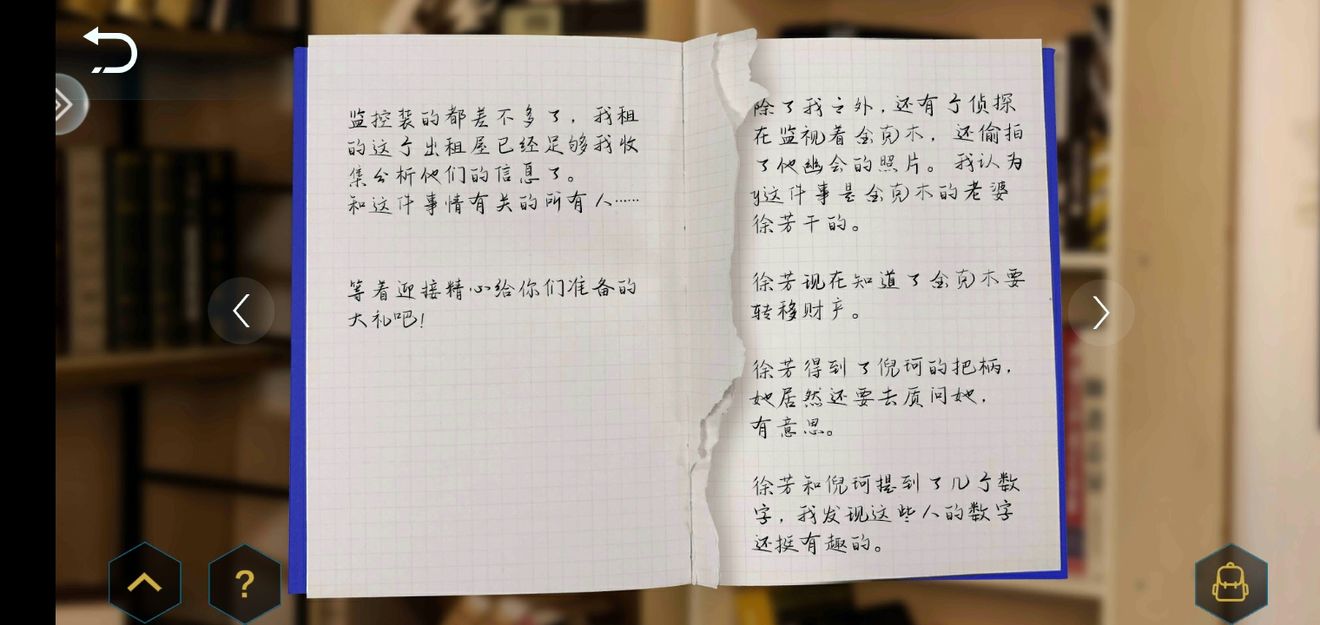 监控装的都差不多了，我租
的这个出租屋已经足够我收
集分析他们的信息了。
和这件事情有关的所有人……
等着迎接精心给你们准备的
大礼吧！
除了我之外，还有个侦探
在监视着金克木，还偷拍
了他幽会的照片。我认为
y这件事是金克木的老婆
徐芳干的。
徐芳现在知道了金克木要
转移财产。
徐芳得到了倪珂的把柄，
她居然还要去质问她，
有意思。
徐芳和倪珂提到了几个数
字，我发现这些人的数字
还挺有趣的。
?